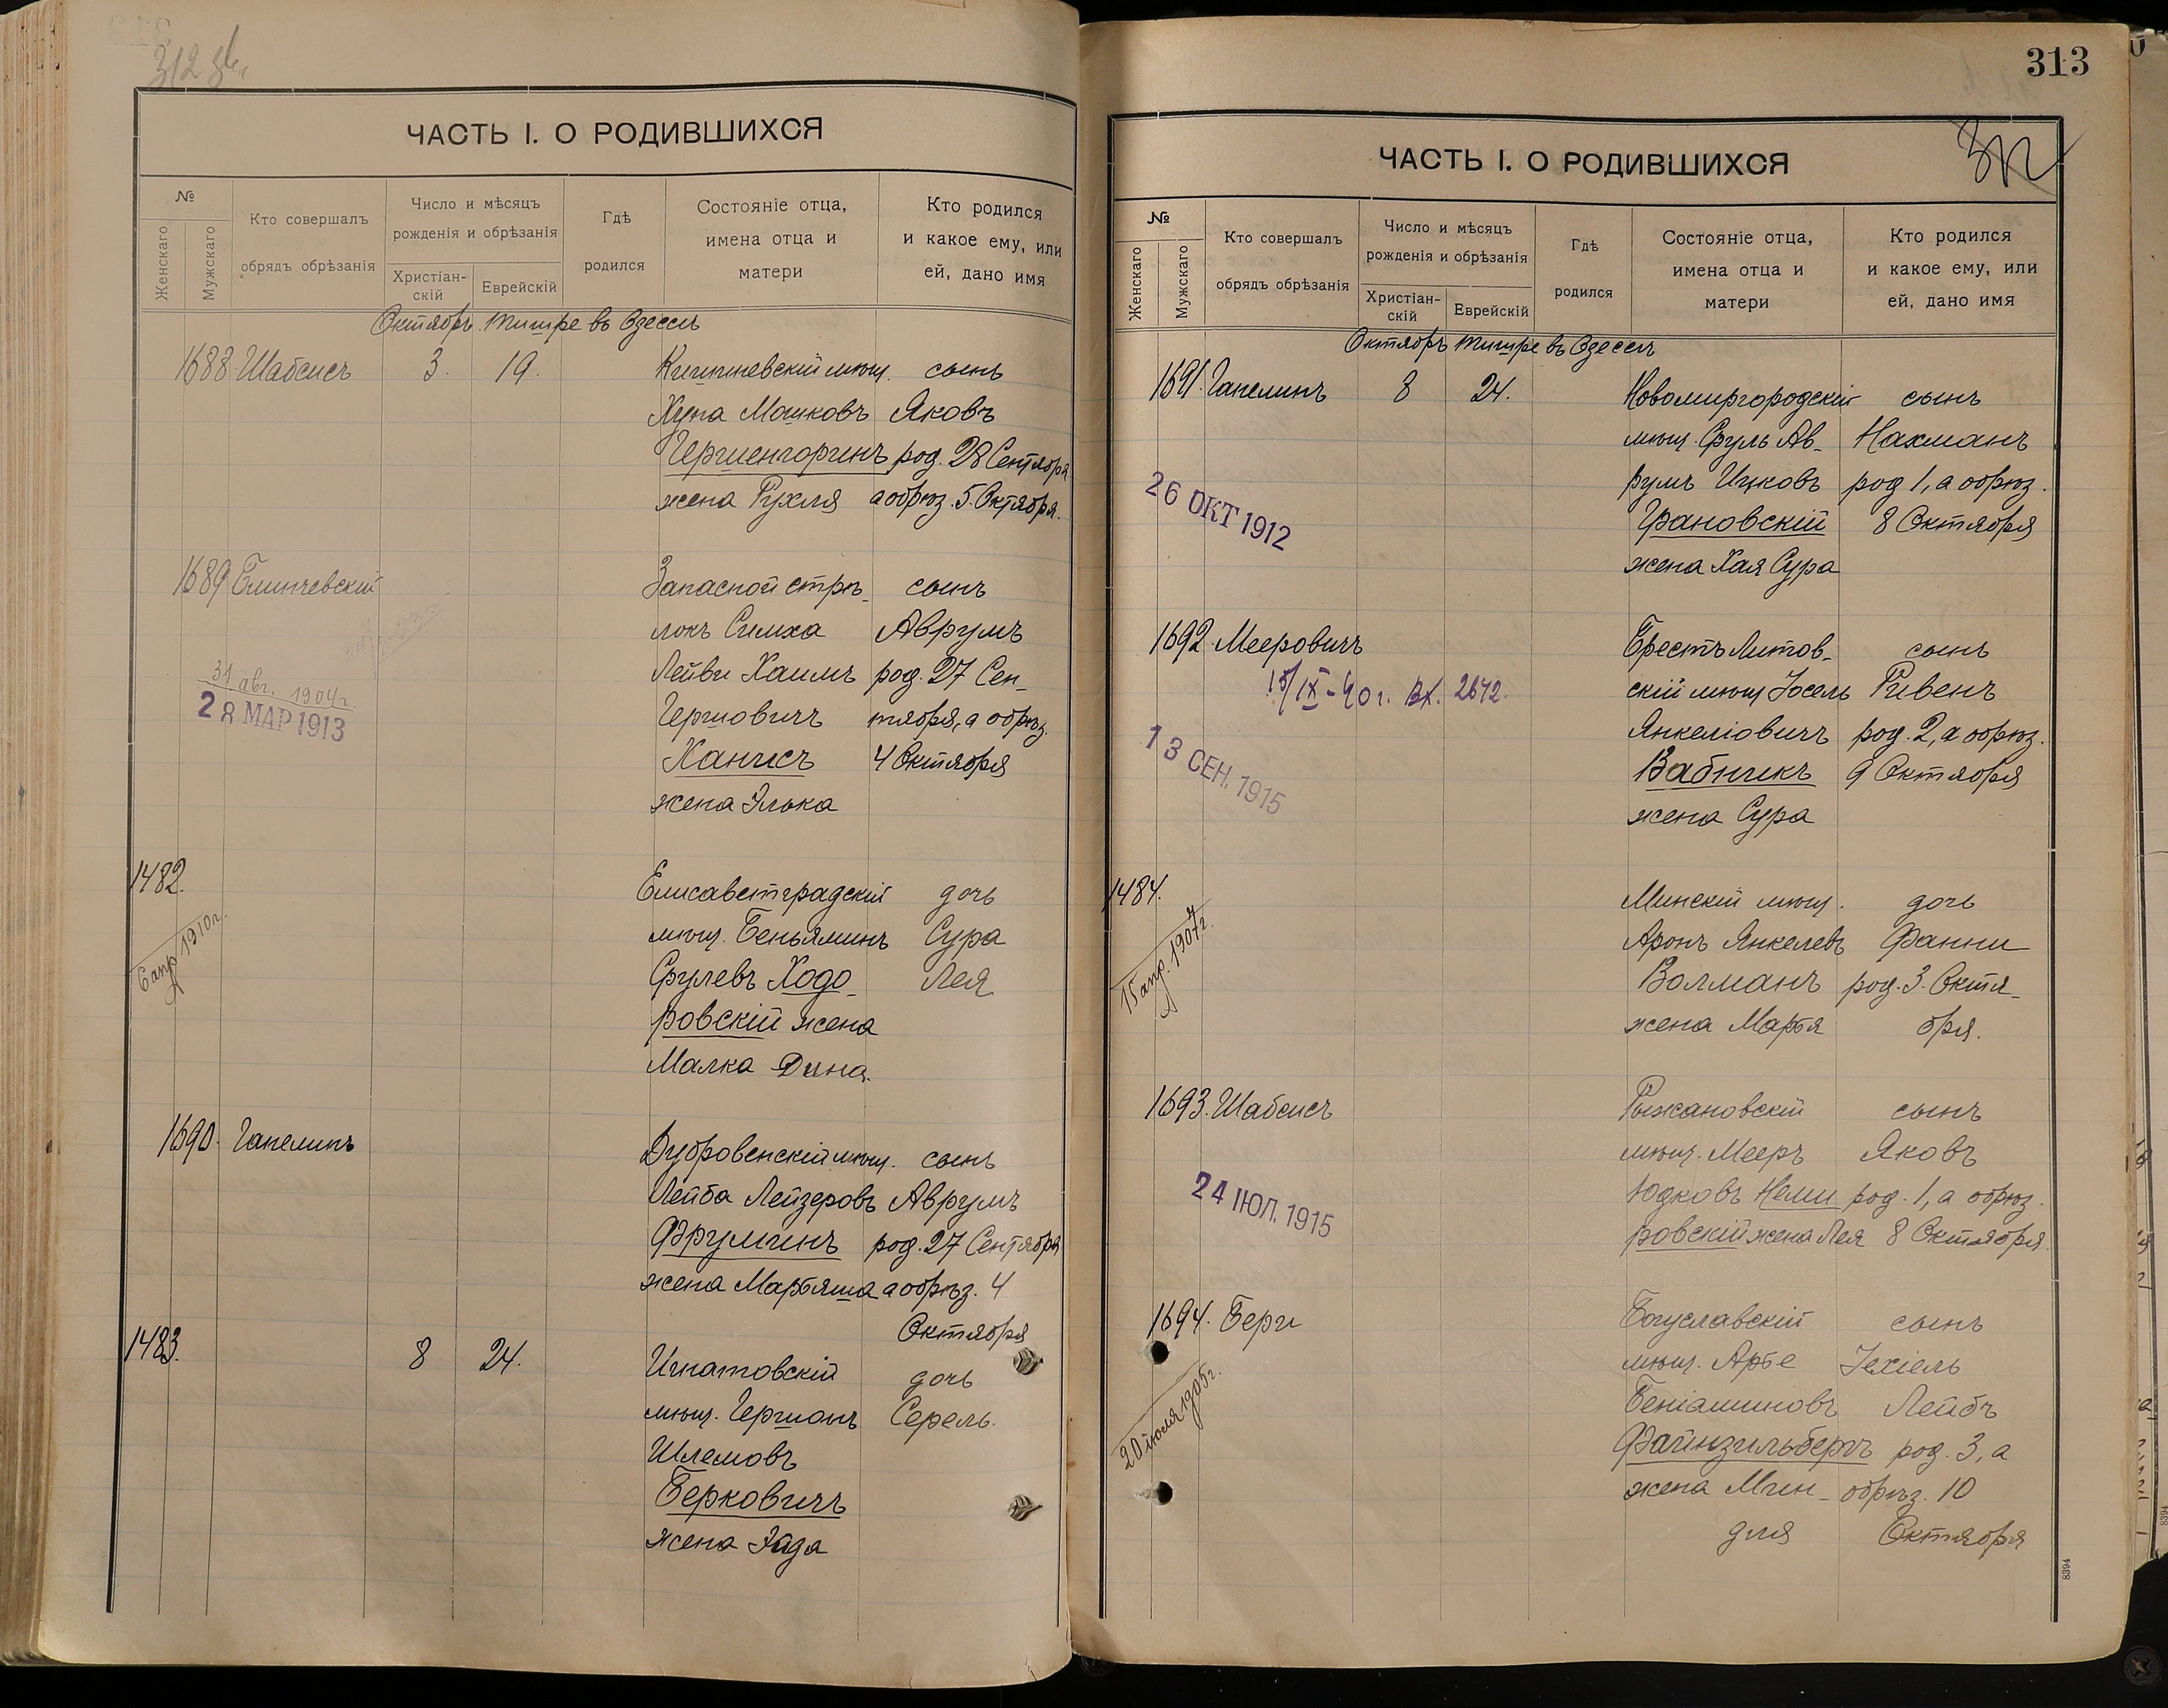 312 об.
ЧАСТЬ I. О РОДИВШИХСЯ
№
Женскаго
Мужскаго
Кто совершалъ
обрядъ обрѣзанія
Число и мѣсяцъ
рожденія и обрѣзанія
Христіан-
скій
Еврейскій
Гдѣ
родился
Состояніе отца,
имена отца и
матери
Кто родился
и какое ему, или
ей, дано имя
Октябрь. Тишре въ Одессѣ
1688 Шабсисъ 3. 19. Кишиневскій мѣщ. сынъ
Хуна Мошковъ Яковъ
Гершенгоринъ род. 28 Сентября
жена Рухля а обрѣз. 5. Октября.
1689 Запасной стрѣ- сынъ
локъ Симха Аврумъ
Лейви Хаимъ род. 27 Сен-
31 авг. 1904г.
28 МАР 1913
Гершовичъ тября, а обрѣз.
Ханисъ 4 Октября
жена Элька
1482. Елисаветградскій дочь
мѣщ. Беньяминъ Сура
6 апр 1910г.
Срулевъ Ходо- Лея
ровскій жена
Малка Дина.
1690. Гапелинъ Дубровенскій мѣщ. сынъ
Лейба Лейзеровъ Аврумъ
Фрумгинъ род. 27 Сентября
жена Марьяша а обрѣз. 4
Октября
1483. 8 24. Игнатовскій дочь
мѣщ. Гершонъ Серель.
Шлемовъ
Берковичъ
жена Эйда
313
312
ЧАСТЬ I. О РОДИВШИХСЯ
№
Женскаго
Мужскаго
Кто совершалъ
обрядъ обрѣзанія
Число и мѣсяцъ
рожденія и обрѣзанія
Христіан-
скій
Еврейскій
Гдѣ
родился
Состояніе отца,
имена отца и
матери
Кто родился
и какое ему, или
ей, дано имя
Октябрь Тишре въ Одессѣ
1691. Гапелинъ 8 24. Новомиргородскій сынъ
мѣщ. Сруль Ав- Нахманъ
румъ Ицковъ род 1, а обрѣз.
26 ОКТ 1912
Грановскій 8 Октября
жена Хая Сура
1692 Мееровичъ Брестъ Литов- сынъ
15/IX-40 г. вх. 2642.
скій мѣщ Іосель Рувенъ
Янкеліовичъ род. 2, а обрѣз.
13 СЕН. 1915
Вабникъ 9 Октября
жена Сура
1484. Минскій мѣщ. дочь
15 апр. 1907г.
Аронъ Янкелевъ Фанни
Волманъ род. 3. Октя-
жена Марья бря.
1693. Шабсисъ Рыжановскій сынъ
мѣщ. Мееръ Яковъ
24 ІЮЛ. 1915
Юдковъ Неми род. 1, а обрѣз.
ровскій жена Лея 8 Октября.
1694. Берги Богуславскій сынъ
мѣщ. Арье Іехіель
20 іюля 1905г.
Беніаминовъ Лейбъ
Файнзильбергъ род. 3, а
жена Мин- обрѣз. 10
для Октября
8394